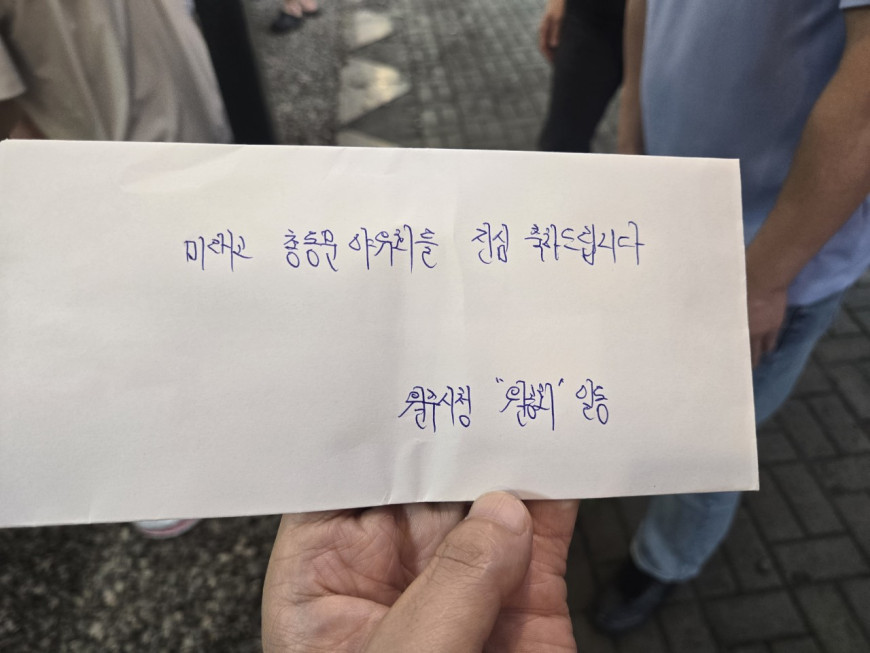 미래고 총동문 야유회를 진심 축하드립니다
원주시청 "원공회" 일동